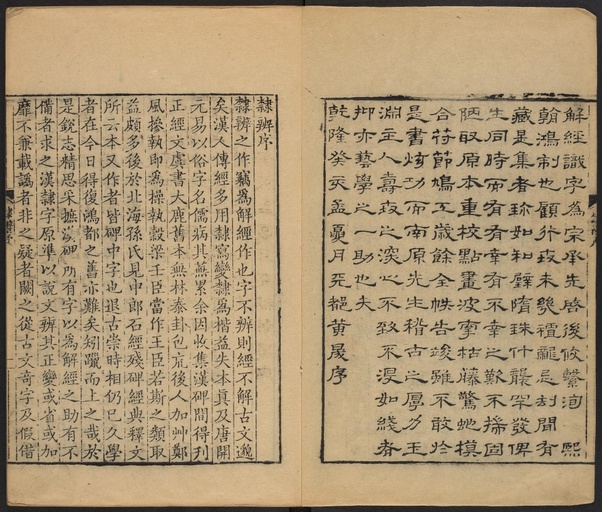 解經識字為宗承先啓後攸繫洵熙
翰鴻制也顧行致未幾忌刦聞有
藏是集者珎如和璧隋珠什襲罕發俾
生同時而有有幸有不幸之歎不揣固
陋取原本重校點畫波枯藤驚蛇摸
合符節鳩工歲餘全帙告竣雖不敢於
是書炫功而南原先生稽古之厚力玉
淵主人嗜攷之深心不致不湮如綫者
抑亦藝學之一助也夫
乾隆癸亥孟夏月天都黃晟序
隸辨序
隸辨之作竊為解經作也字不辨則經不解古文邈
矣漢人傳經多用隸寫變隸為楷益失本真及唐開
元易以俗字名儒病其蕪累余因收集漢碑間得刊
正經文虙書大鹿舊本無林泰卦包巟後人加艸鄭
風摻執即為操執穀梁壬臣當作王臣若斯之類取
益頗多後於北海孫氏見中郎石經殘碑經典釋文
所云本又作者皆碑中字也退古崇時相仍已久學
者在今日得後鴻都之舊亦難矣矧躐而上之哉於
是銳志精思采摭漢碑所有字以為解經之助有不
備者求之漢隸字原準以說文辨其正變或省或加
靡不兼載譌者非之疑者闕之從古文奇字及假借